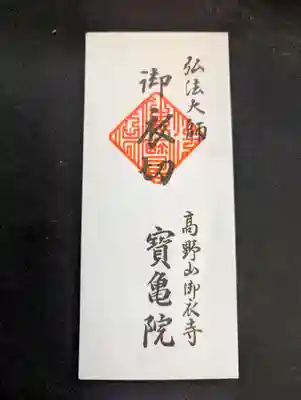 弘法大師
御衣切
高野山御衣寺
寳亀院